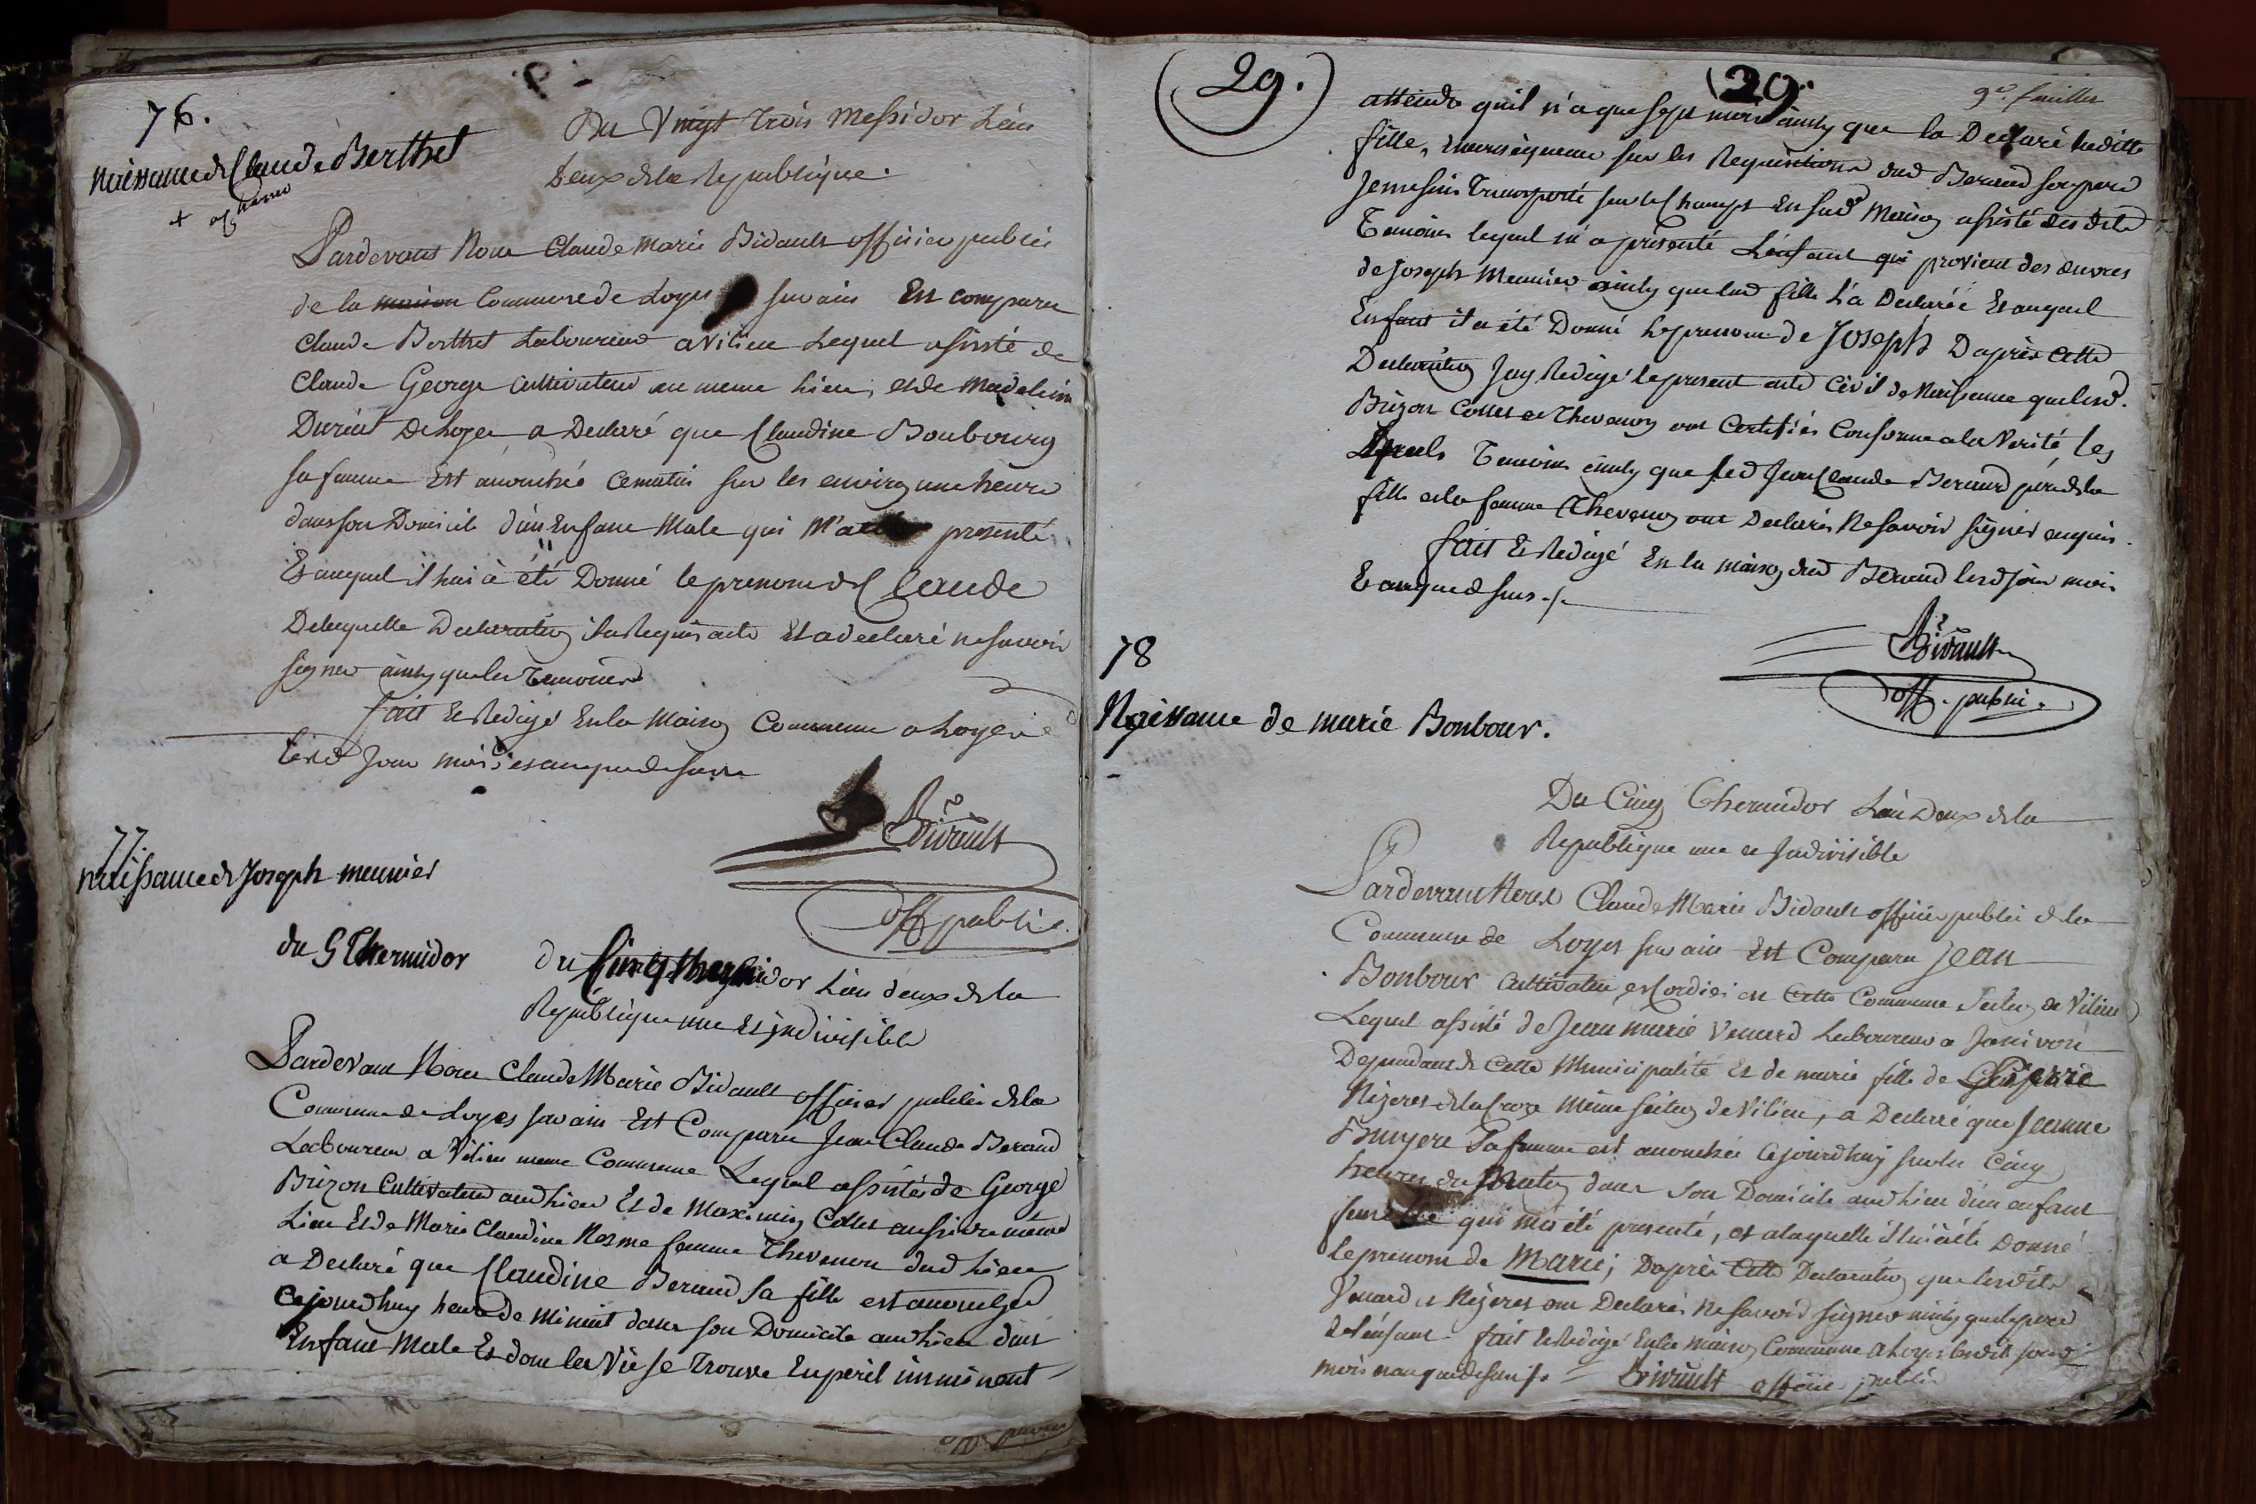 76.
Naissance de Claude Berthet
Du Vingt Trois Messidor L'an
Deux de la Republique.
Pardevant Nous Claude Marie Bidault officier public
de la maison Commune de Loyes sur ain Est comparu
Claude Berthet Laboureur a Vilieu Lequel assisté de
Claude George Cultivateur au meme Lieu, et de Madeleine
De Loyes a Declaré que Claudine Bonbourg
sa femme Est acouchée ce matin sur les environ une heure
dans son Domicile d'un Enfant Male qui m'a presenté
Et auquel il lui à été Donné le prenom de Claude
De laquelle Declaration il a Requis acte Et a declaré ne savoir
signer ainsy que les Temoins
fait Et Redigé En la Maison Commune a Loyes
lesd. Jour mois et an que dessus
Bidault
off. public.
77.
naissance de Joseph meunier
du 5 Thermidor
du Cinq thermidor L'an deux de la
Republique une Et indivisible
Pardevant Nous Claude Marie Bidault officier public de la
Commune de Loyes sur ain Est Comparu Jean Claude Beraud
Laboureur a Vilieu meme Commune Lequel assistés de George
Brizon Cultivateur aud. Lieu Et de Maximin Collet aussi du même
Lieu Et de Marie Claudine Nesme femme Thevenon dud. Lieu
a Declaré que Claudine Beraud Sa fille est acouchée
Cejourdhuy heure de Minuit dans son Domicile aud. Lieu d'un
Enfant Male Et dont la Vie se Trouve En peril imminent
(29.)
29.
9e. feuillet
attendu qu'il n'a que sept mois ainsy que la Declaré laditte
fille, En conséquence sur les Requisitions dud. Beraud son pere
Je me suis Transporté sur le Champs En sad. Maison assisté des dits
Temoins lequel m'a présenté L'enfant qui provient des œuvres
de Joseph Meunier ainsy que lad. fille L'a Declarée Et auquel
Enfant il a été Donné le prenom de Joseph D'après Cette
Declaration J'ay Redigé le present acte Civil de Naissance que lesd.
Brizon Collet et Thevenon ont Certifiés Conforme a la Verité, les
Temoins ainsy que led. Jean Claude Beraud pere de la
fille et la femme Thevenon ont Declarés Ne savoir signer enquis.
fait Et Redigé En la maison dud. Beraud lesd. jour mois
Et an que dessus ./.
Bidault
off. public.
78
Naissance de marie Bonbour.
Du Cinq Thermidor L'an Deux de la
Republique une et Indivisible
Pardevant Nous Claude Marie Bidault officier public de la
Commune de Loyes sur ain Est Comparu Jean
Bonbour Cultivateur et Cordier en Cette Commune Section de Vilieu
Lequel assisté de Jean marie Venard Laboureur a Janivon
Dependant de Cette Municipalité Et de marie fille de Pierre
Nizeres de la Croze Même Section de Vilieu, a Declaré que Jeanne
Bruyere Sa femme est acouchée Cejourdhuy sur les Cinq
heures du Matin dans son Domicile aud. Lieu d'un enfant
femelle qui m'a été presenté, et a laquelle il lui à été Donné
le prenom de Marie; D'après Cette Declaration que lesdits
Venard et Nizeres ont Declarés Ne savoir signer ainsy que le pere
de L'enfant. fait Et Redigé En la maison Commune a Loyes lesdits jour
mois et an que dessus ./. Bidault officier public